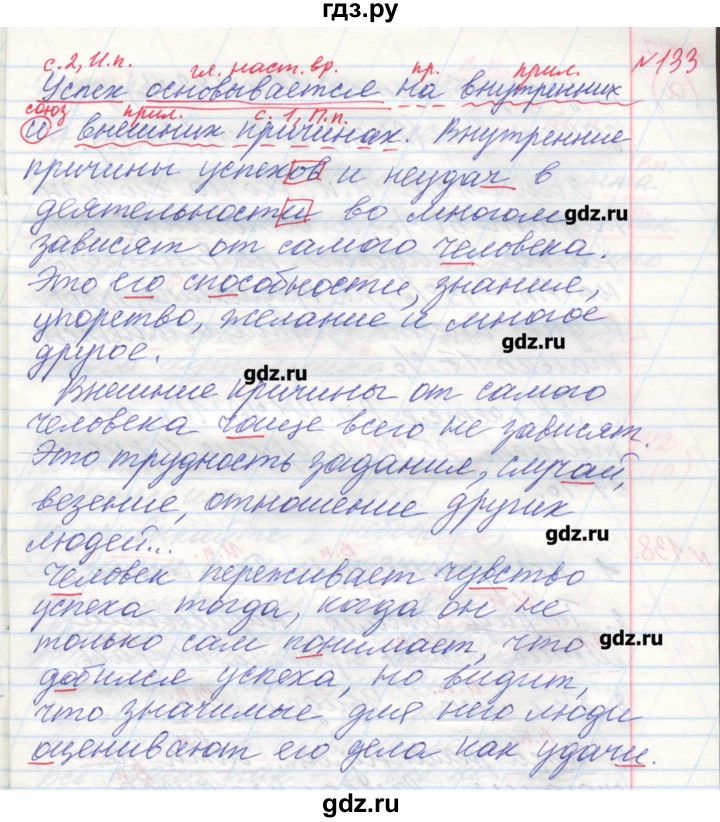 гдз.ру
с. 2, И.п. гл. наст. вр. пр. прил. №133
Успех основывается на внутренних
союз прил. с. 1, П.п.
и внешних причинах. Внутренние
причины успехов и неудач в
деятельности во многом gdz.ru
зависят от самого человека.
Это его способности, знание,
упорство, желание и многое
другое. gdz.ru
gdz.ru
Внешние причины от самого
человека чаще всего не зависят.
Это трудность задания, случай,
везение, отношение других
людей... gdz.ru
Человек переживает чувство
успеха тогда, когда он не
только сам понимает, что gdz.ru
добился успеха, но видит,
что значимые для него люди
оценивают его дела как удачи.
gdz.ru